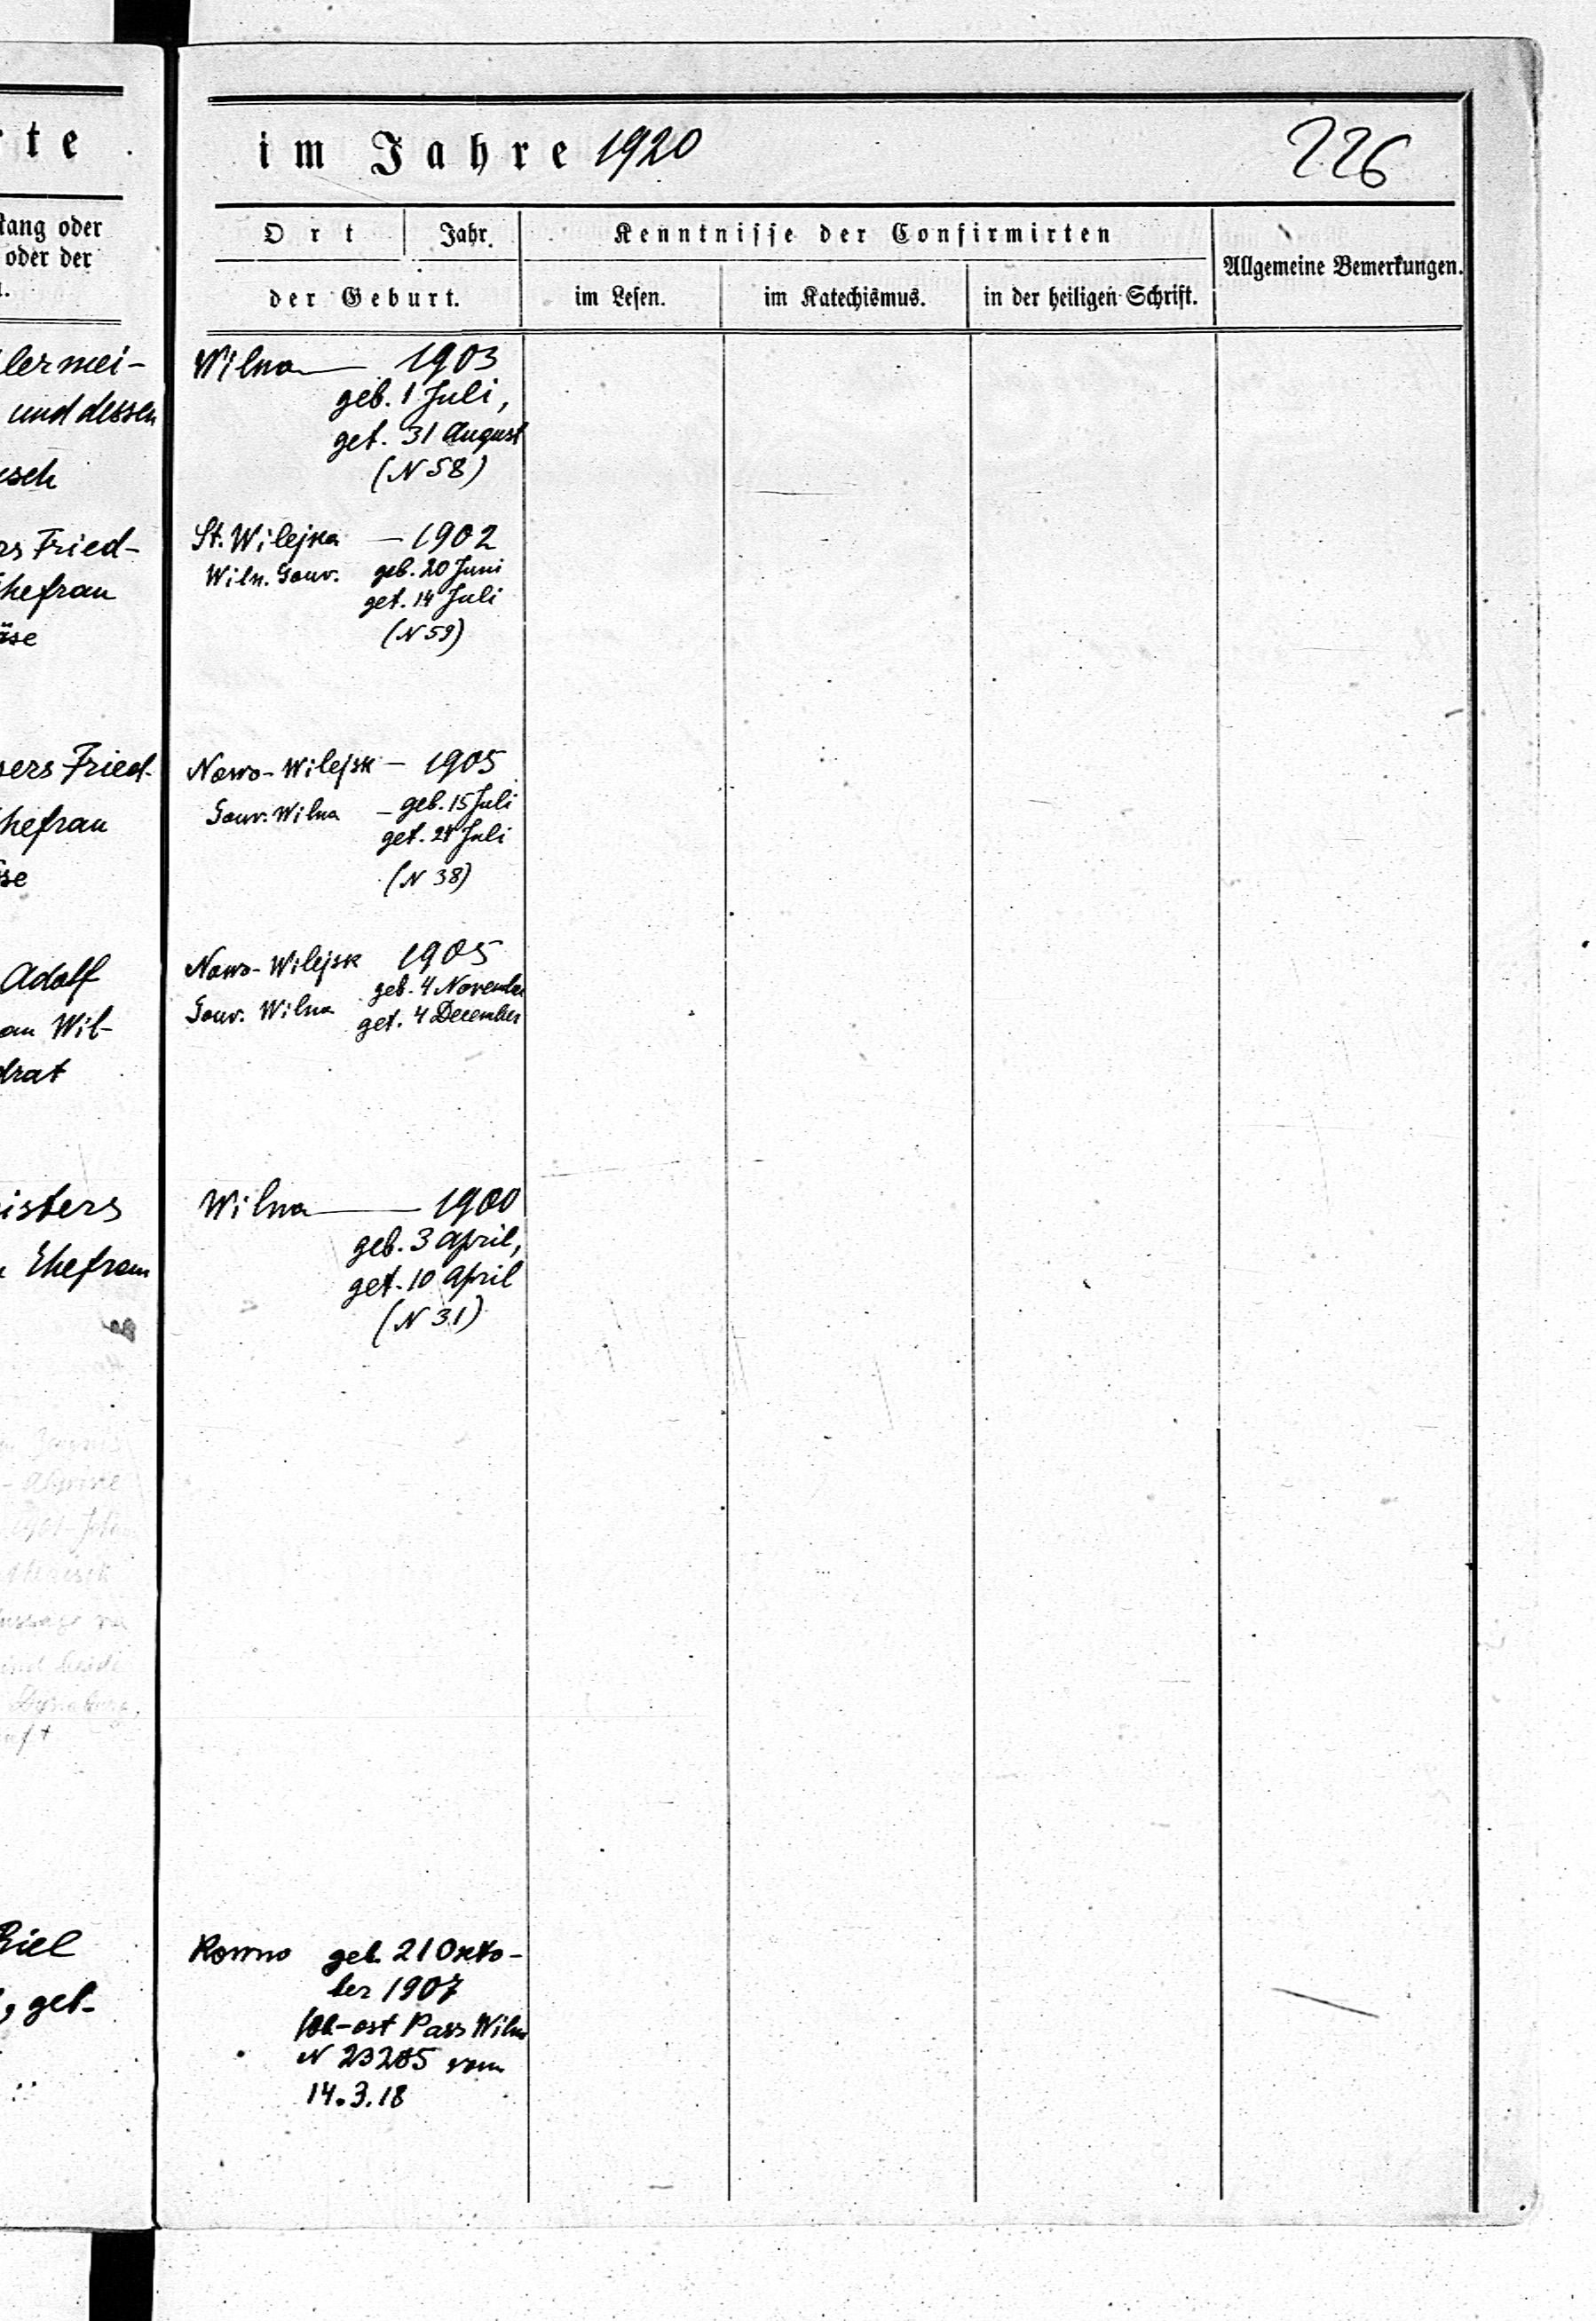 te
im Jahre 1920
226
tang oder
oder der
Ort
Jahr
der Geburt.
Kenntnisse der Confirmirten
im Lesen.
im Katechismus.
in der heiligen Schrift.
Allgemeine Bemerkungen.
lermei-
und dessen
sch
Wilna — 1903
geb. 1 Juli,
get. 31 August
(N 58)
rs Fried-
Ehefrau
äse
St. Wilejka — 1902
Wiln. Gouv. geb. 20 Juni
get. 14 Juli
(N 59)
sers Fried-
Ehefrau
se
Nowo-Wilejsk — 1905
Gouv. Wilna — geb. 15 Juli
get. 24 Juli
(N 38)
Adolf
au Wil-
drat
Nowo-Wilejsk 1905
geb. 4 November
Gouv. Wilna
get. 4 December
isters
Ehefrau
Wilna — 1900
geb. 3 April,
get. 10 April
(N 31)
Riel
, geb-
Kowno geb. 21 Okto-
ber 1907
Ob-ost Pass Wilna
N 23285 vom
14.3.18